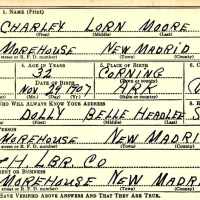 1. NAME (Print)
CHARLEY LORN MOORE
(First) (Middle) (Last)
MOREHOUSE NEW MADRID
(Town) (County)
4. AGE IN YEARS 5. PLACE OF BIRTH
32 CORNING
DATE OF BIRTH (Town or county)
Nov 29 1907 ARK
(Mo.) (Day) (Yr.) (State or country)
WHO WILL ALWAYS KNOW YOUR ADDRESS
DOLLY BELLE HEADLEE
(First) (Middle) (Last)
MOREHOUSE NEW MADRI
(Town) (County)
H. LBR. CO
MOREHOUSE NEW MADRI
(Town) (County)
HAVE VERIFIED ABOVE ANSWERS AND THAT THEY ARE TRUE.